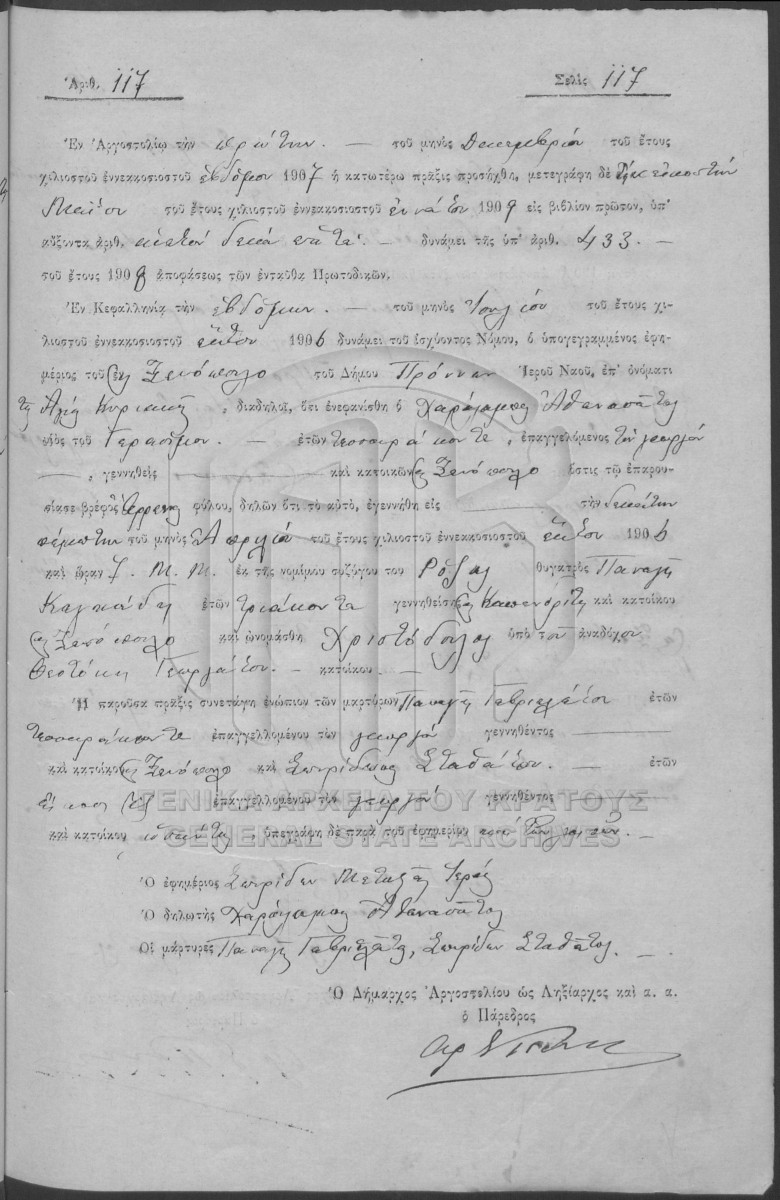 Ἀριθ. 117 Σελὶς 117
Ἐν Ἀργοστολίῳ τὴν πρώτην. — τοῦ μηνὸς Δεκεμβρίου τοῦ ἔτους
χιλιοστοῦ ἐννεακοσιοστοῦ ἑβδόμου 1907 ἡ κατωτέρω πρᾶξις προσήχθη, μετεγράφη δὲ τὴν εἰκοστὴν
Μαΐου τοῦ ἔτους χιλιοστοῦ ἐννεακοσιοστοῦ ἐννάτου 1909 εἰς βιβλίον πρῶτον, ὑπ'
αὔξοντα ἀριθ. ἑκατὸν δεκα επτά. — δυνάμει τῆς ὑπ' ἀριθ. 433. —
τοῦ ἔτους 1908 ἀποφάσεως τῶν ἐνταῦθα Πρωτοδικῶν.
Ἐν Κεφαλληνίᾳ τὴν ἑβδόμην. — τοῦ μηνὸς Ἰουλίου τοῦ ἔτους χι-
λιοστοῦ ἐννεακοσιοστοῦ ἕκτου 1906 δυνάμει τοῦ ἰσχύοντος Νόμου, ὁ ὑπογεγραμμένος ἐφη-
μέριος τοῦ Ξενόπουλο τοῦ Δήμου Πρόννων Ἱεροῦ Ναοῦ, ἐπ' ὀνόματι
τῆς Ἁγίας Κυριακῆς, διαδηλοῖ, ὅτι ἐνεφανίσθη ὁ Χαράλαμπος Ἀθανασάτος
υἱὸς τοῦ Γερασίμου. — ἐτῶν τεσσαράκοντα, ἐπαγγελόμενος τὸν γεωργόν
—, γεννηθεὶς — καὶ κατοικῶν Ξενόπουλο ὅστις τῷ ἐπαρου-
σίασε βρέφος ἄρρενος φύλου, δηλῶν ὅτι τὸ αὐτό, ἐγεννήθη εἰς — τὴν δεκάτην
πέμπτην τοῦ μηνὸς Ἀπριλίου τοῦ ἔτους χιλιοστοῦ ἐννεακοσιοστοῦ ἕκτου 1906
καὶ ὥραν 7. Μ. Μ. ἐκ τῆς νομίμου συζύγου του Ρόζας θυγατρὸς Παναγῆ
ἐτῶν τριάκοντα γεννηθείσης καὶ κατοίκου
Ξενόπουλο καὶ ὠνομάσθη Χριστόδουλος ὑπὸ τοῦ ἀναδόχου
Θεοτόκη Γεωργάτου. — κατοίκου. —
Ἡ παροῦσα πρᾶξις συνετάγη ἐνώπιον τῶν μαρτύρων Παναγῆ Γαβριελάτου ἐτῶν
τεσσαράκοντα ἐπαγγελλομένου τὸν γεωργόν γεννηθέντος —
καὶ κατοίκου Ξενόπουλο καὶ Σπυρίδωνος Σταθάτου. — ἐτῶν
εἴκοσι ἕξ ἐπαγγελλομένου τὸν γεωργόν γεννηθέντος —
καὶ κατοίκου, ὑπεγράφη δὲ παρὰ τοῦ ἐφημερίου
ΓΕΝΙΚΑ ΑΡΧΕΙΑ ΤΟΥ ΚΡΑΤΟΥΣ
GENERAL STATE ARCHIVES
Ὁ ἐφημέριος Σπυρίδων Μεταξᾶς Ἱερεύς
Ὁ δηλωτὴς Χαράλαμπος Ἀθανασάτος
Οἱ μάρτυρες Παναγῆς Γαβριελάτος, Σπυρίδων Σταθάτος. —
Ὁ Δήμαρχος Ἀργοστολίου ὡς Ληξίαρχος καὶ α. α.
ὁ Πάρεδρος